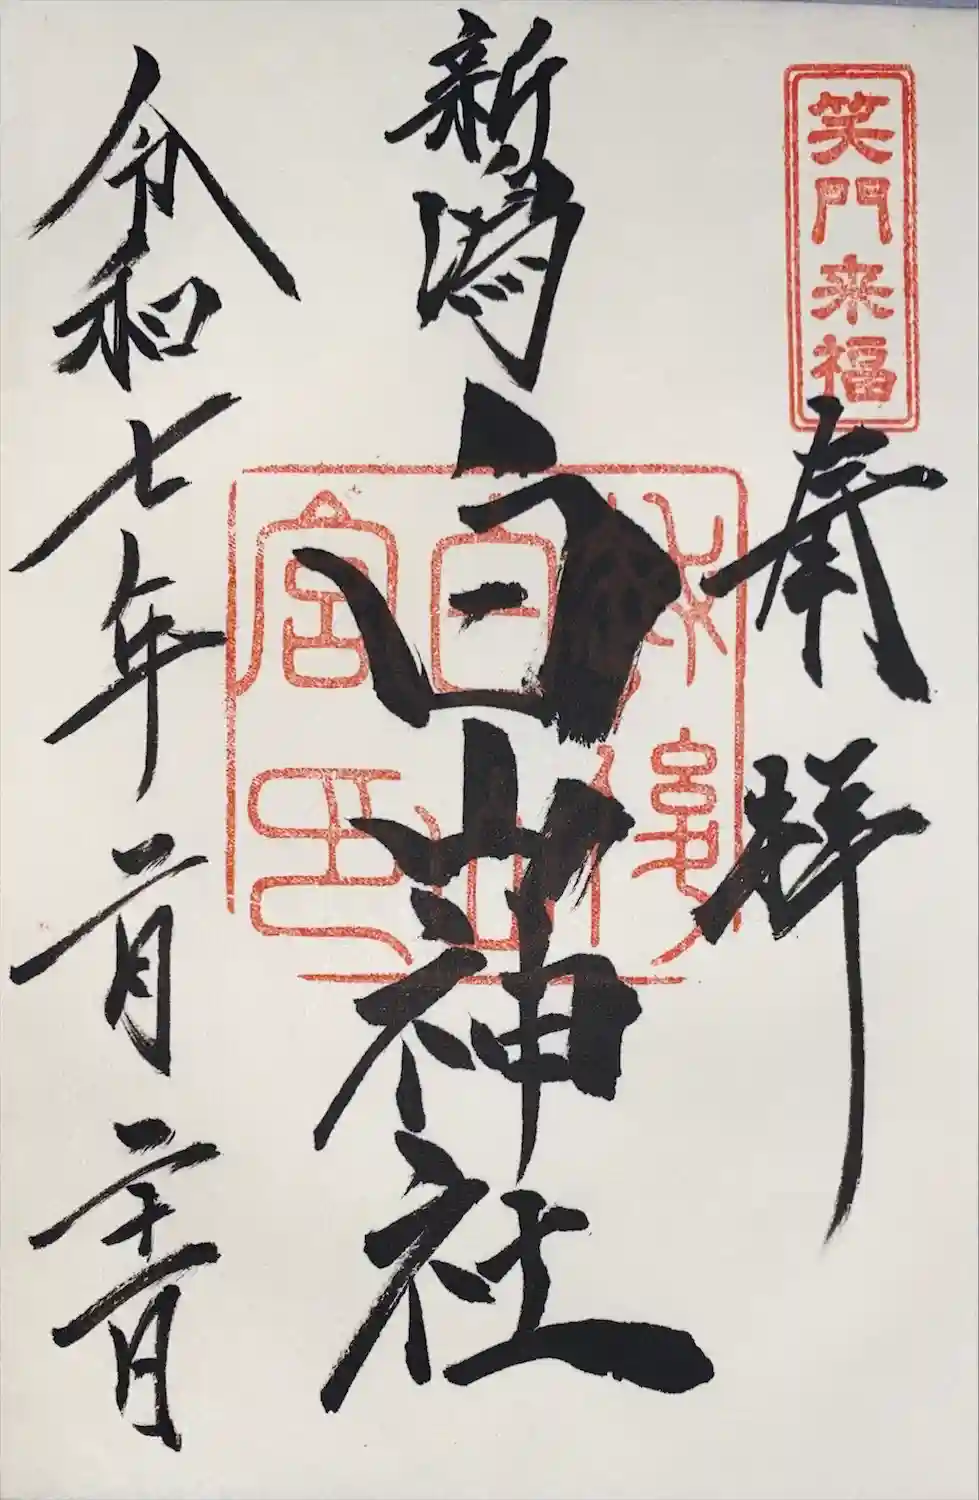 笑門来福
奉拝
新潟
白山神社
令和七年二月二十一日